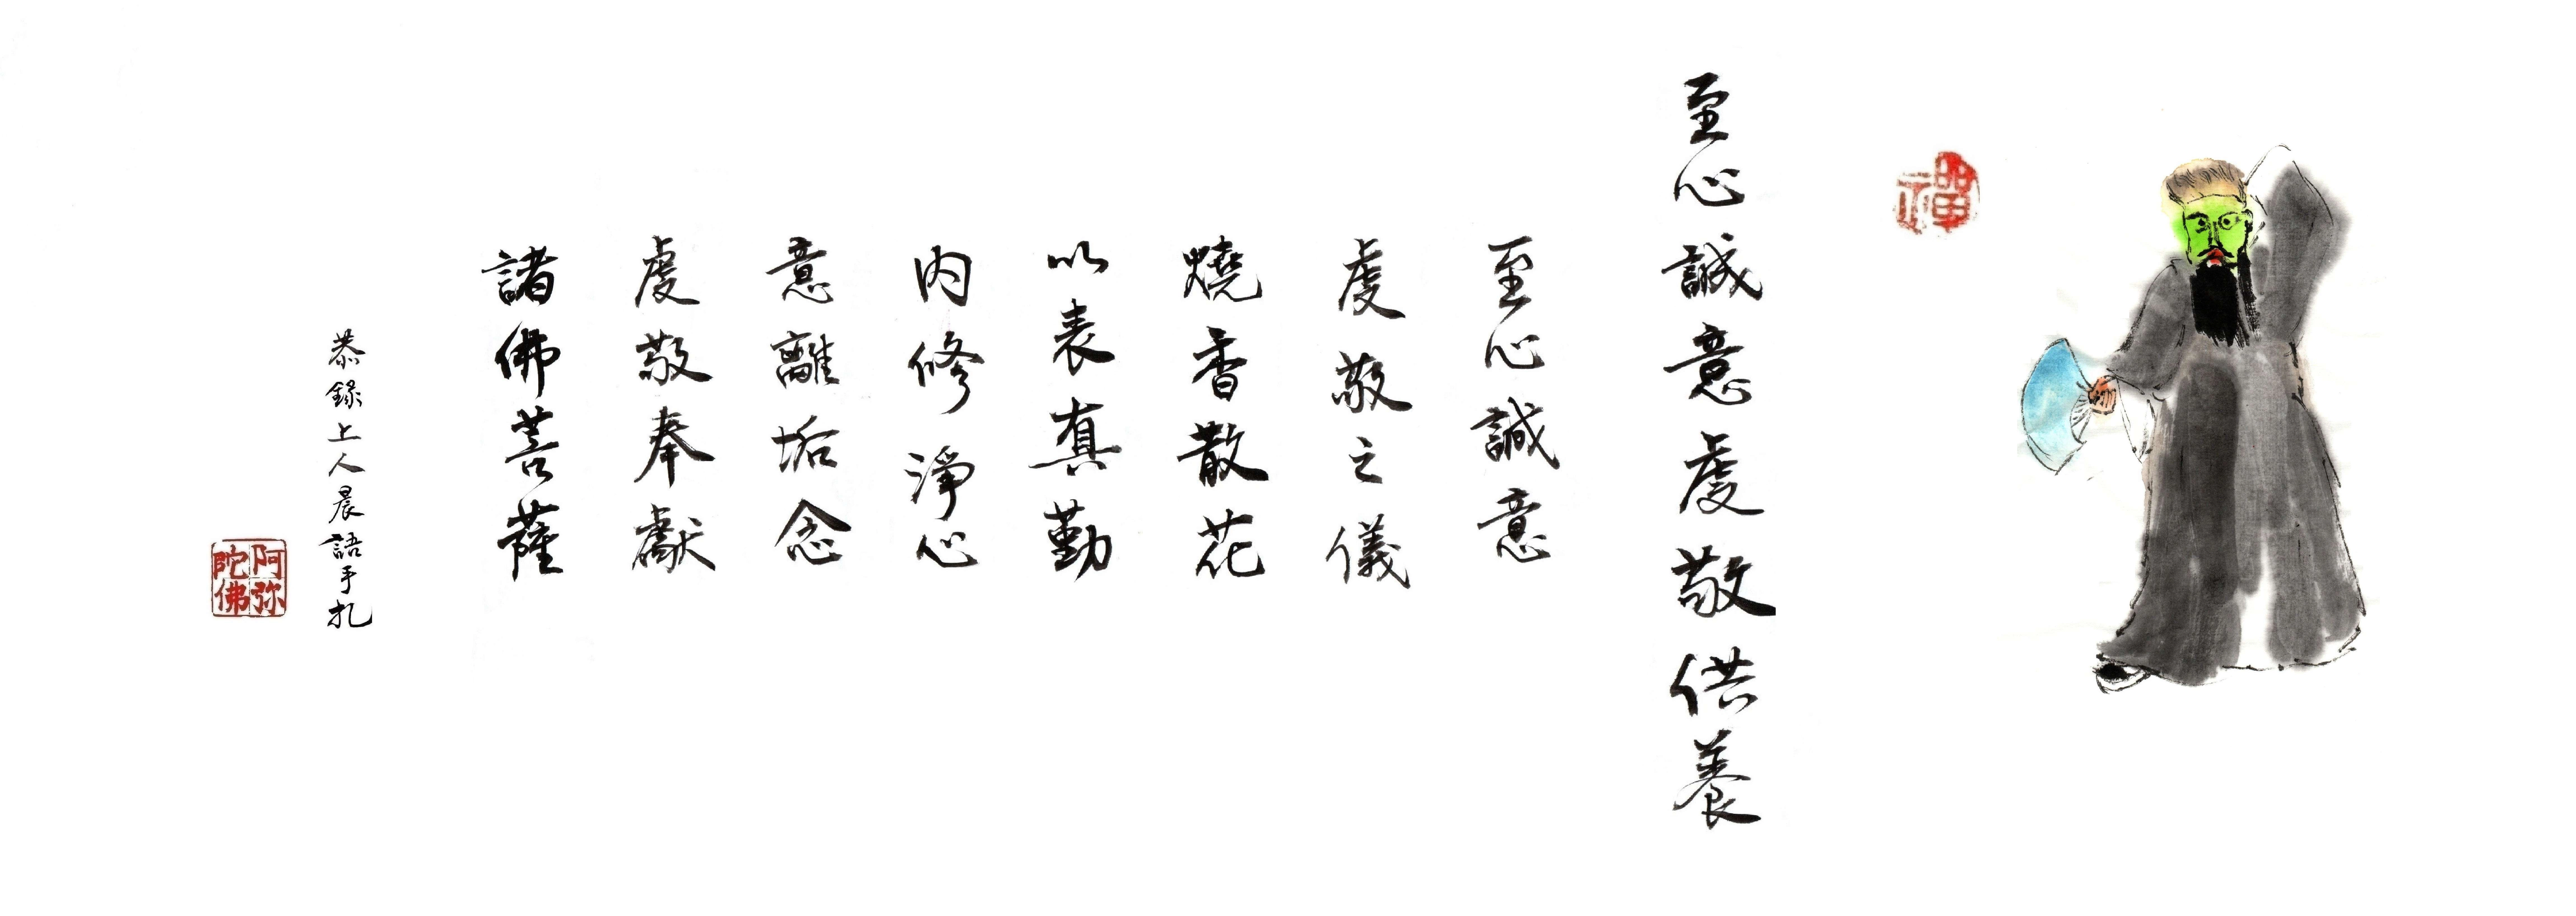 禪
至心誠意虔敬供養
至心誠意
虔敬之儀
燒香散花
以表真勤
內修淨心
意離垢念
虔敬奉獻
諸佛菩薩
恭錄上人晨語手札
阿弥陀佛